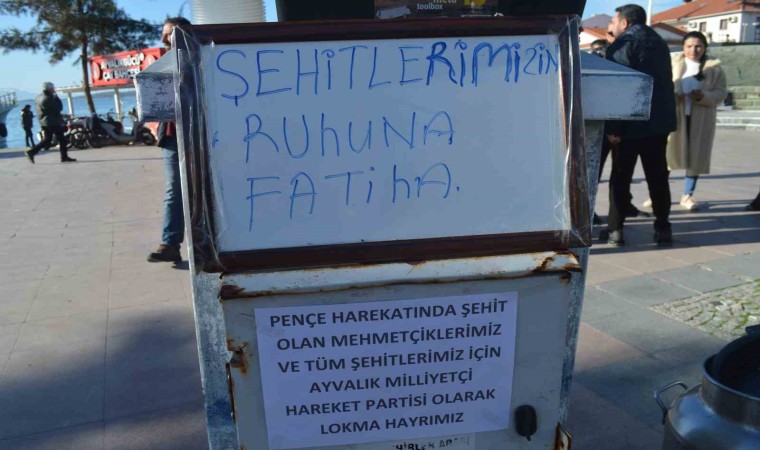 toolbox
ŞEHiTLERiMiZiN
RUHUNA
FATiHA.
PENÇE HAREKATINDA ŞEHİT
OLAN MEHMETÇİKLERİMİZ
VE TÜM ŞEHİTLERİMİZ İÇİN
AYVALIK MİLLİYETÇİ
HAREKET PARTİSİ OLARAK
LOKMA HAYRIMIZ